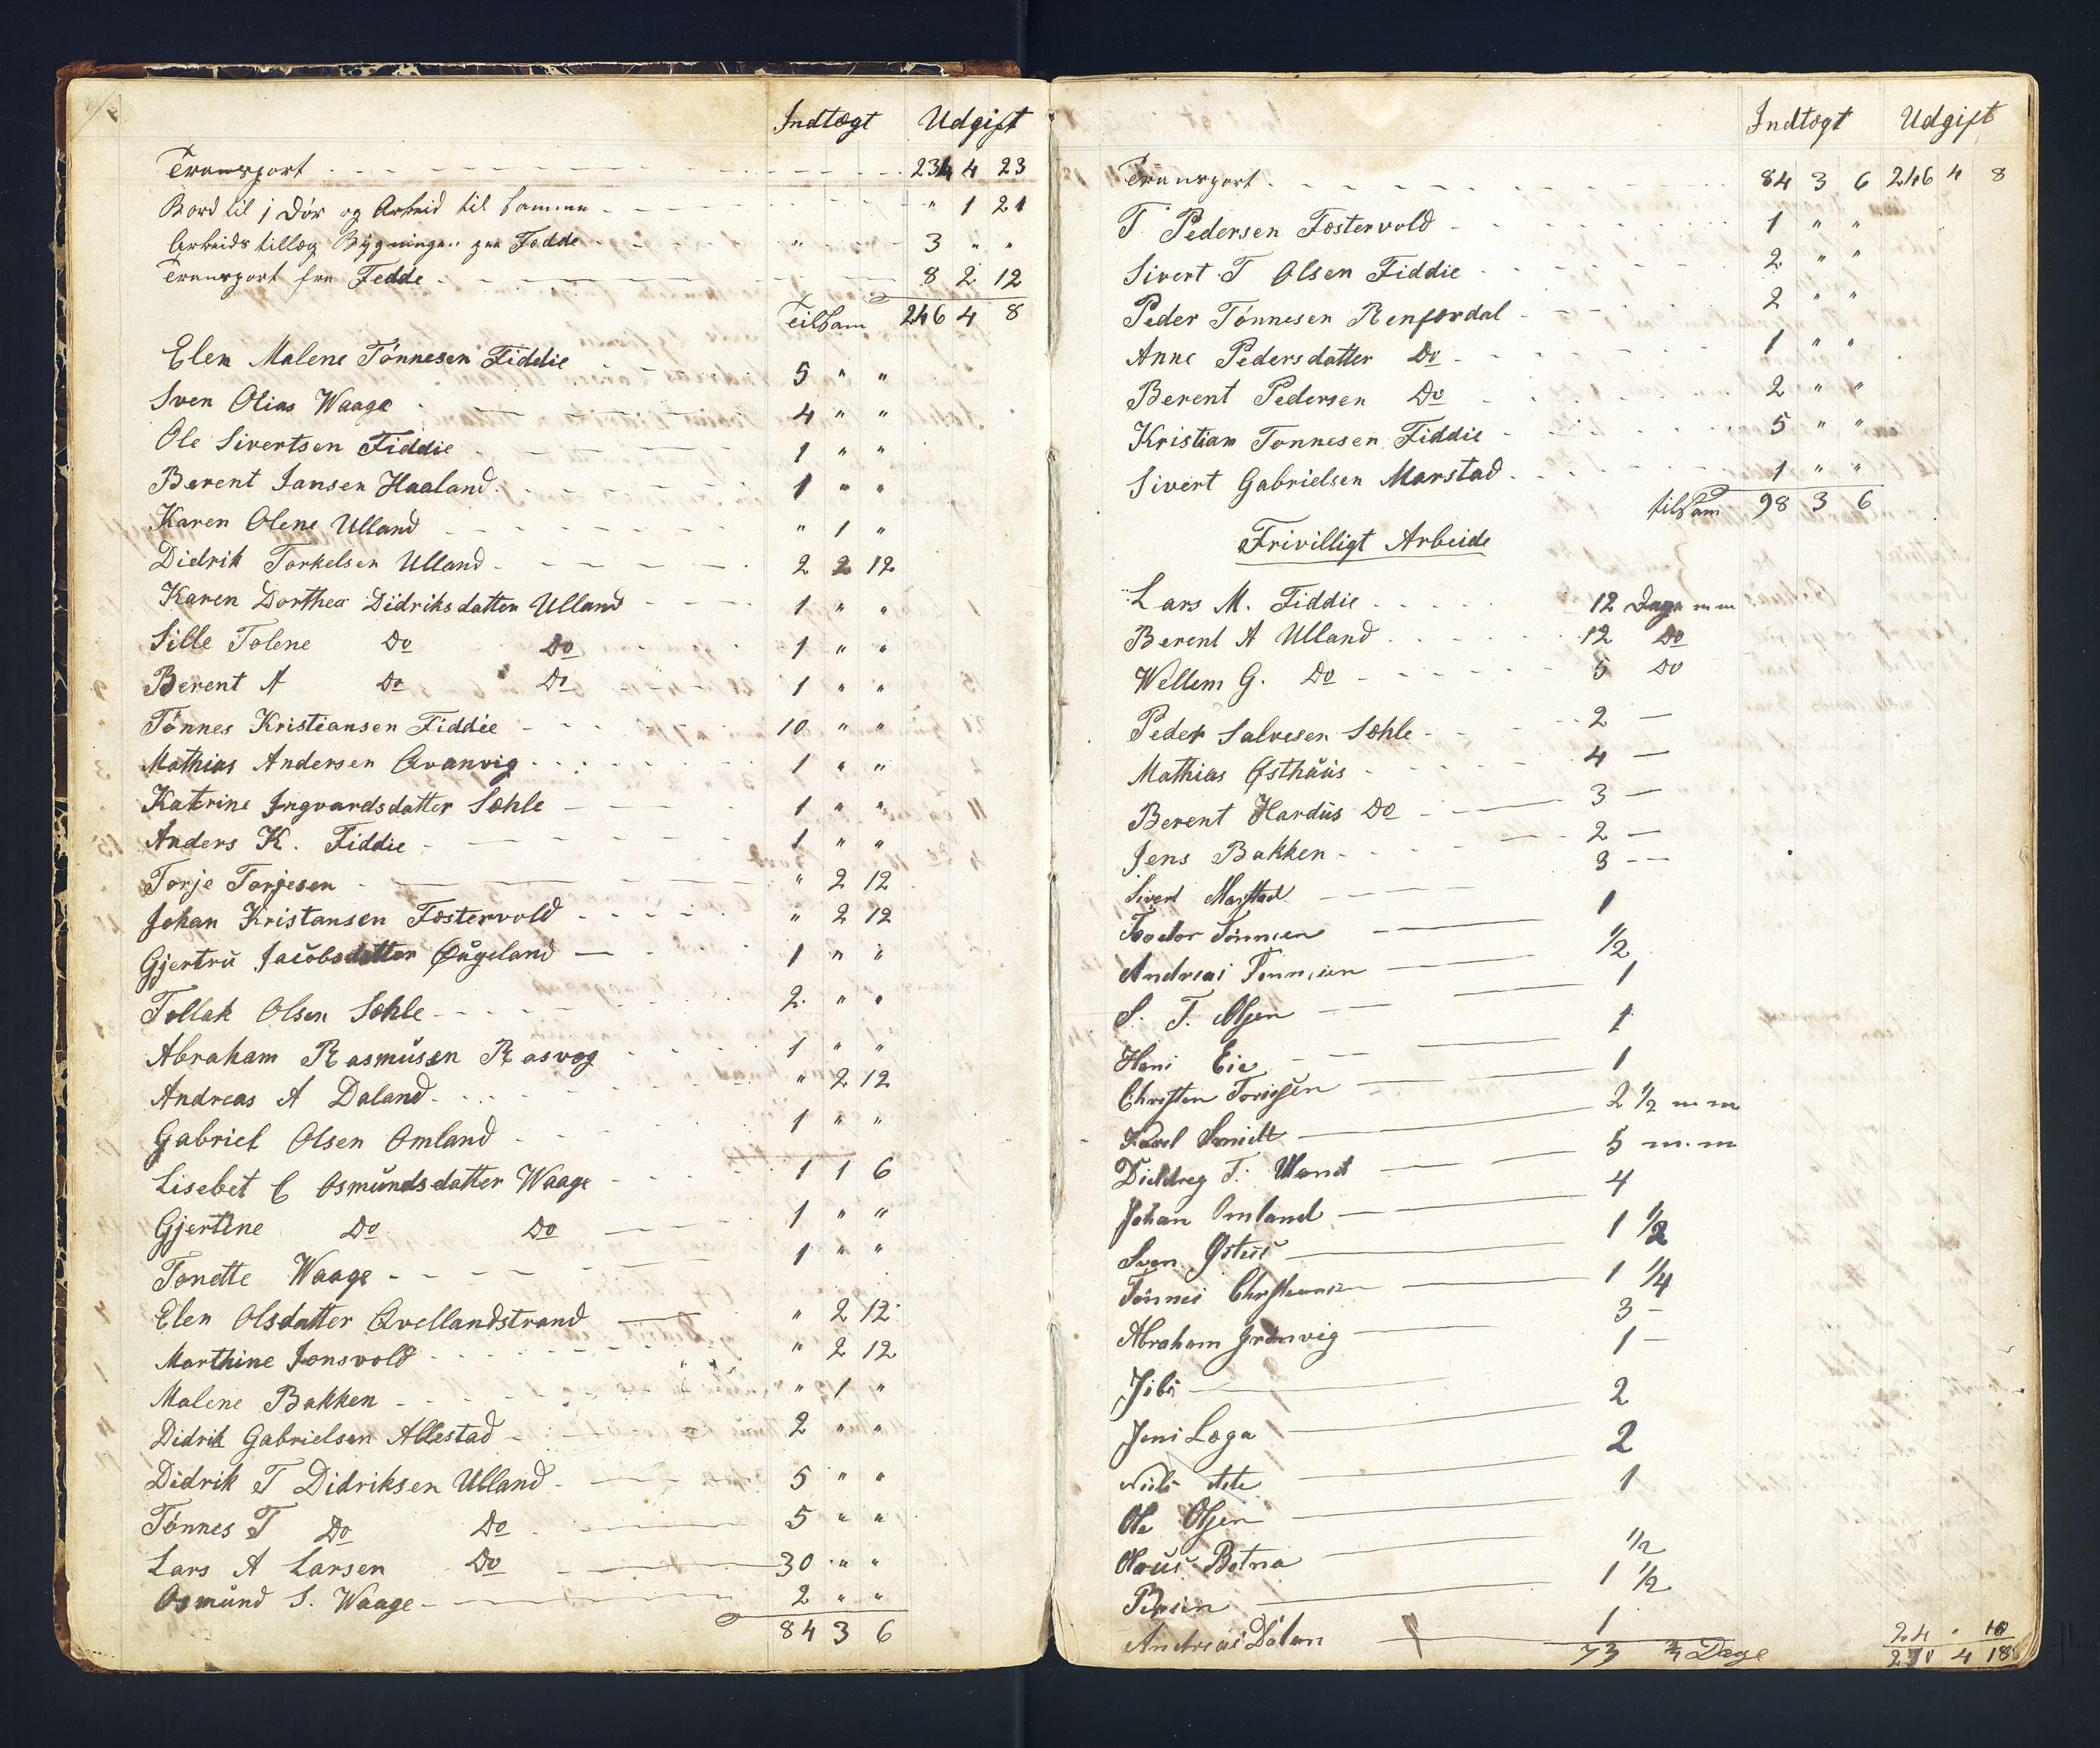 Indtægt Udgift
Transport 234 4 23
Bord til 1 Dör og Arbeid til samme " 1 21
Arbeids tillæg Bÿgningen paa Fedde " 3 " "
Transport fra Fedde 8 2 12
Tilsam 246 4 8
Elen Malene Tönnesen Fiddie 5 " "
Sven Olias Waage 4 " "
Ole Sivertsen Fiddie 1 " "
Berent Jansen Haaland 1 " "
Karen Olene Ulland " 1 "
Didrik Torkelsen Ulland 2 2 12
Karen Dorthea Didriksdatter Ulland 1 " "
Sille Tolene Do Do 1 " "
Berent A Do Do 1 " "
Tönnes Kristiansen Fiddie 10 " "
Mathias Andersen Qvanvig 1 " "
Katrine Ingvardsdatter Sæhle 1 " "
Anders K. Fiddie 1 " "
Torje Torjesen " 2 12
Johan Kristansen Fæstervold " 2 12
Gjertru Jacobsdatter Øÿgeland 1 " "
Tollak Olsen Sæhle 2 " "
Abraham Rasmusen Rasvog 1 " "
Andreas A Daland " 2 12
Gabriel Olsen Omland 1 " "
Lisebet C Osmundsdatter Waage 1 1 6
Gjertine Do Do 1 " "
Tonette Waage 1 " "
Elen Olsdatter Qvellandstrand " 2 12
Marthine Jonsvold " 2 12
Malene Bakken " 1 "
Didrik Gabrielsen Allestad 2 " "
Didrik T Didriksen Ulland 5 " "
Tönnes T Do Do 5 " "
Lars A Larsen Do 30 " "
Osmund S. Waage 2 " "
84 3 6
Indtægt Udgift
Transport 84 3 6 246 4 8
T. Pedersen Fæstervold 1 " "
Sivert T Olsen Fiddie 2 " "
Peder Tönnesen Renfordal 2 " "
Anne Pedersdatter Do 1 " "
Berent Pedersen Do 2 " "
Kristian Tonnesen Fiddie 5 " "
Sivert Gabrielsen Marstad 1 " "
tilsam 98 3 6
Frivilligt Arbeide
Lars M. Fiddie 12 Dage m m
Berent A Ulland 12 Do
Wellem G. Do 5 Do
Peder Salvesen Sæhle 2 —
Mathias Østhuus 4 —
Berent Hardus Do 3 —
Jens Bakken 2 —
Sivert Marstad 3 —
Teodor Tönnesen 1
Andreas Tönnesen 1/2
S. T. Olsen 1
Hans Eie 1
Christen Torisen 1
Karl Smidt 2 1/2 m m
Diedreg T. Uland 5 m. m
Johan Omland 4
Sven Østus 1 1/2
Tönnes Christiansen 1 1/4
Abraham Grönvig 3 —
Jibs 1 —
Jens Loga 2
Niels 2
Ole Olsen 1
Olaus Botna 1/2
1 1/2
Andreas Dalan 1
73 3/4 Dage
24 " 10
270 4 18